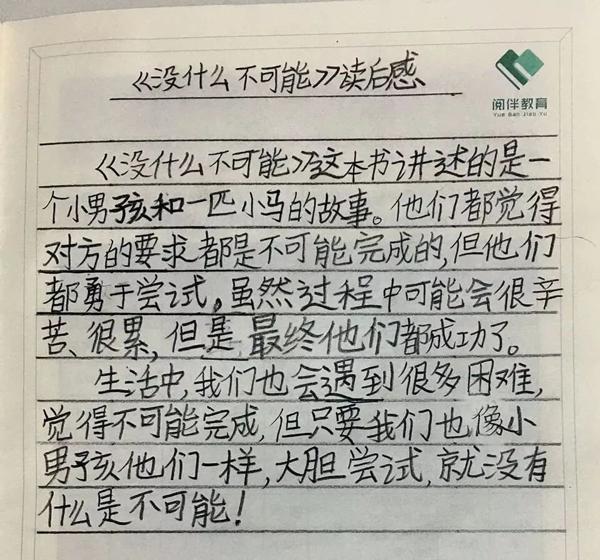 《没什么不可能》读后感
阅伴教育
Yue Ban Jiao Yu
《没什么不可能》这本书讲述的是一
个小男孩和一匹小马的故事。他们都觉得
对方的要求都是不可能完成的,但他们
都勇于尝试。虽然过程中可能会很辛
苦、很累,但是,最终他们都成功了。
生活中,我们也会遇到很多困难,
觉得不可能完成,但只要我们也像小
男孩他们一样,大胆尝试,就没有
什么是不可能!